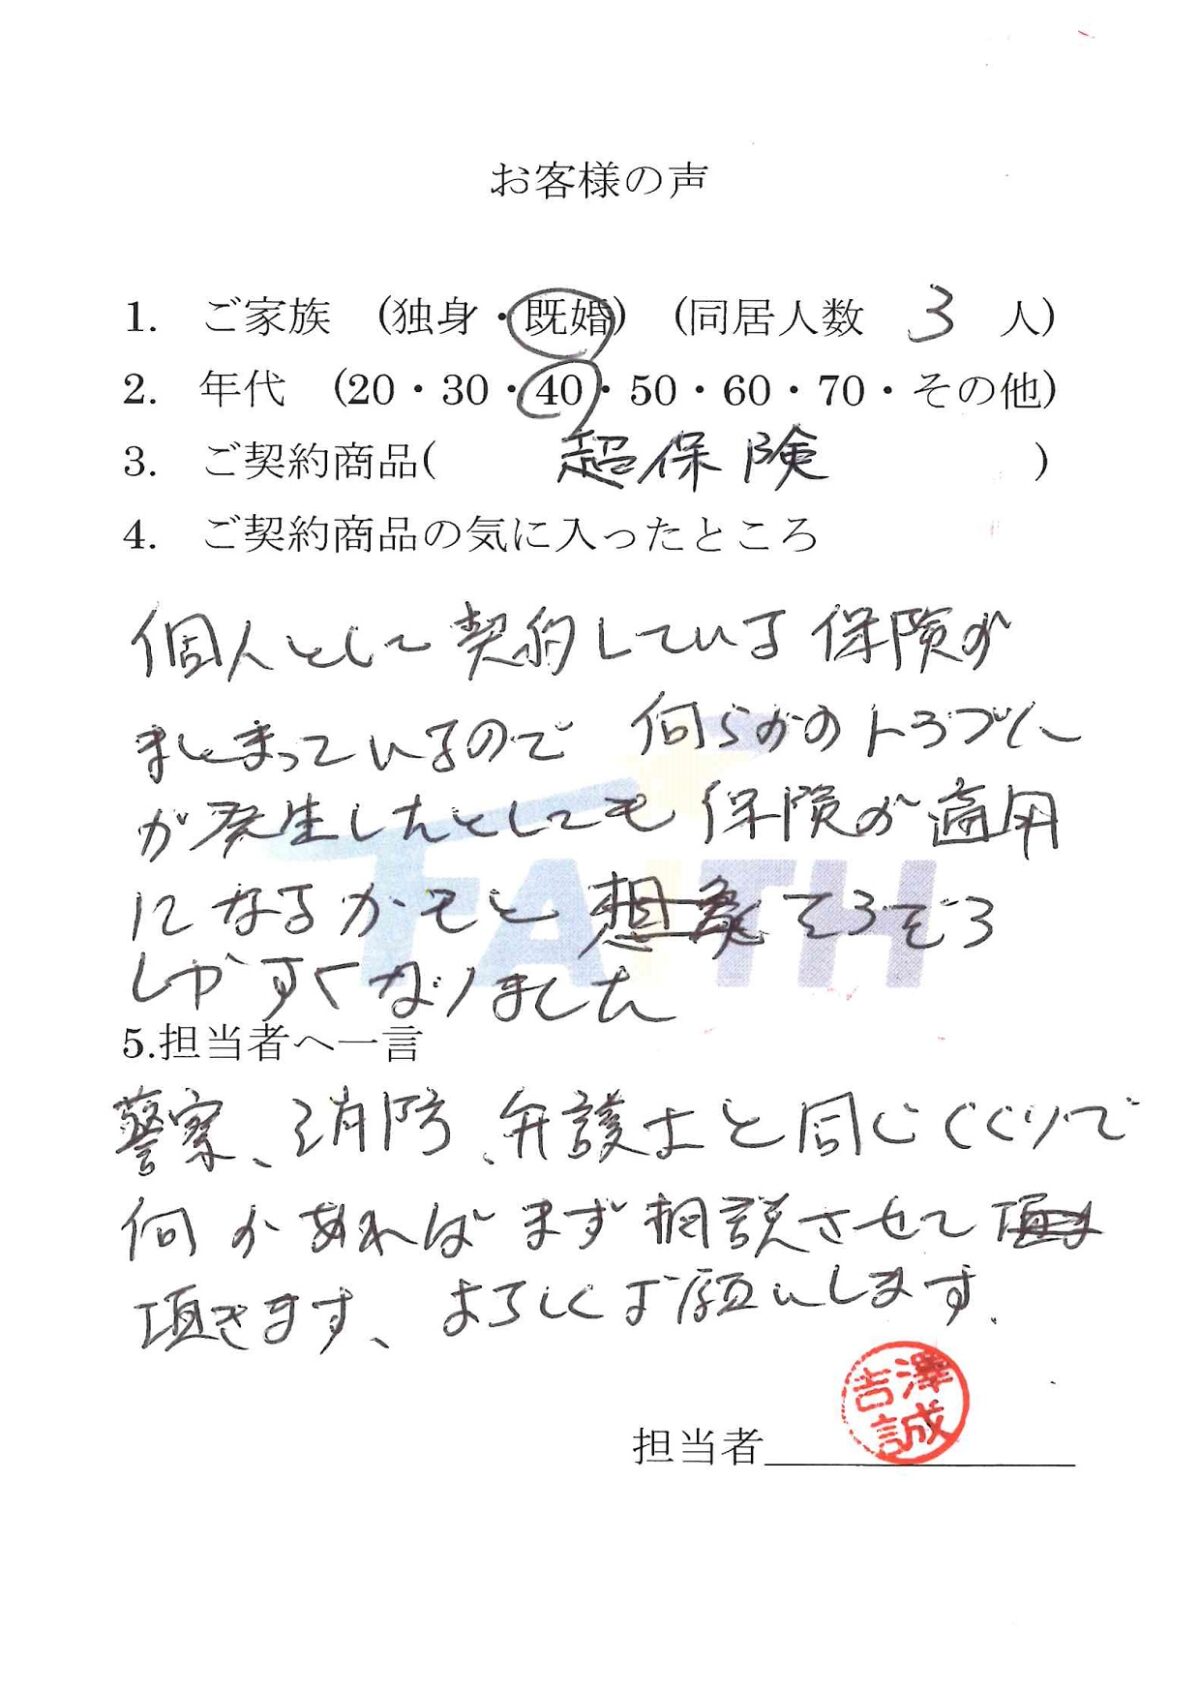 お客様の声
1. ご家族 (独身・既婚) (同居人数 3 人)
2. 年代 (20・30・40・50・60・70・その他)
3. ご契約商品( 超保険 )
4. ご契約商品の気に入ったところ
個人として契約している保険が
まとまっているので 何らかのトラブル
が発生したとしても保険が適用
になるかもと そろそろ
しやすくなりました
FAITH
5.担当者へ一言
警察、消防、弁護士と同じくくりで
何かあればまず相談させて
頂きます、よろしくお願いします.
吉澤
誠
担当者